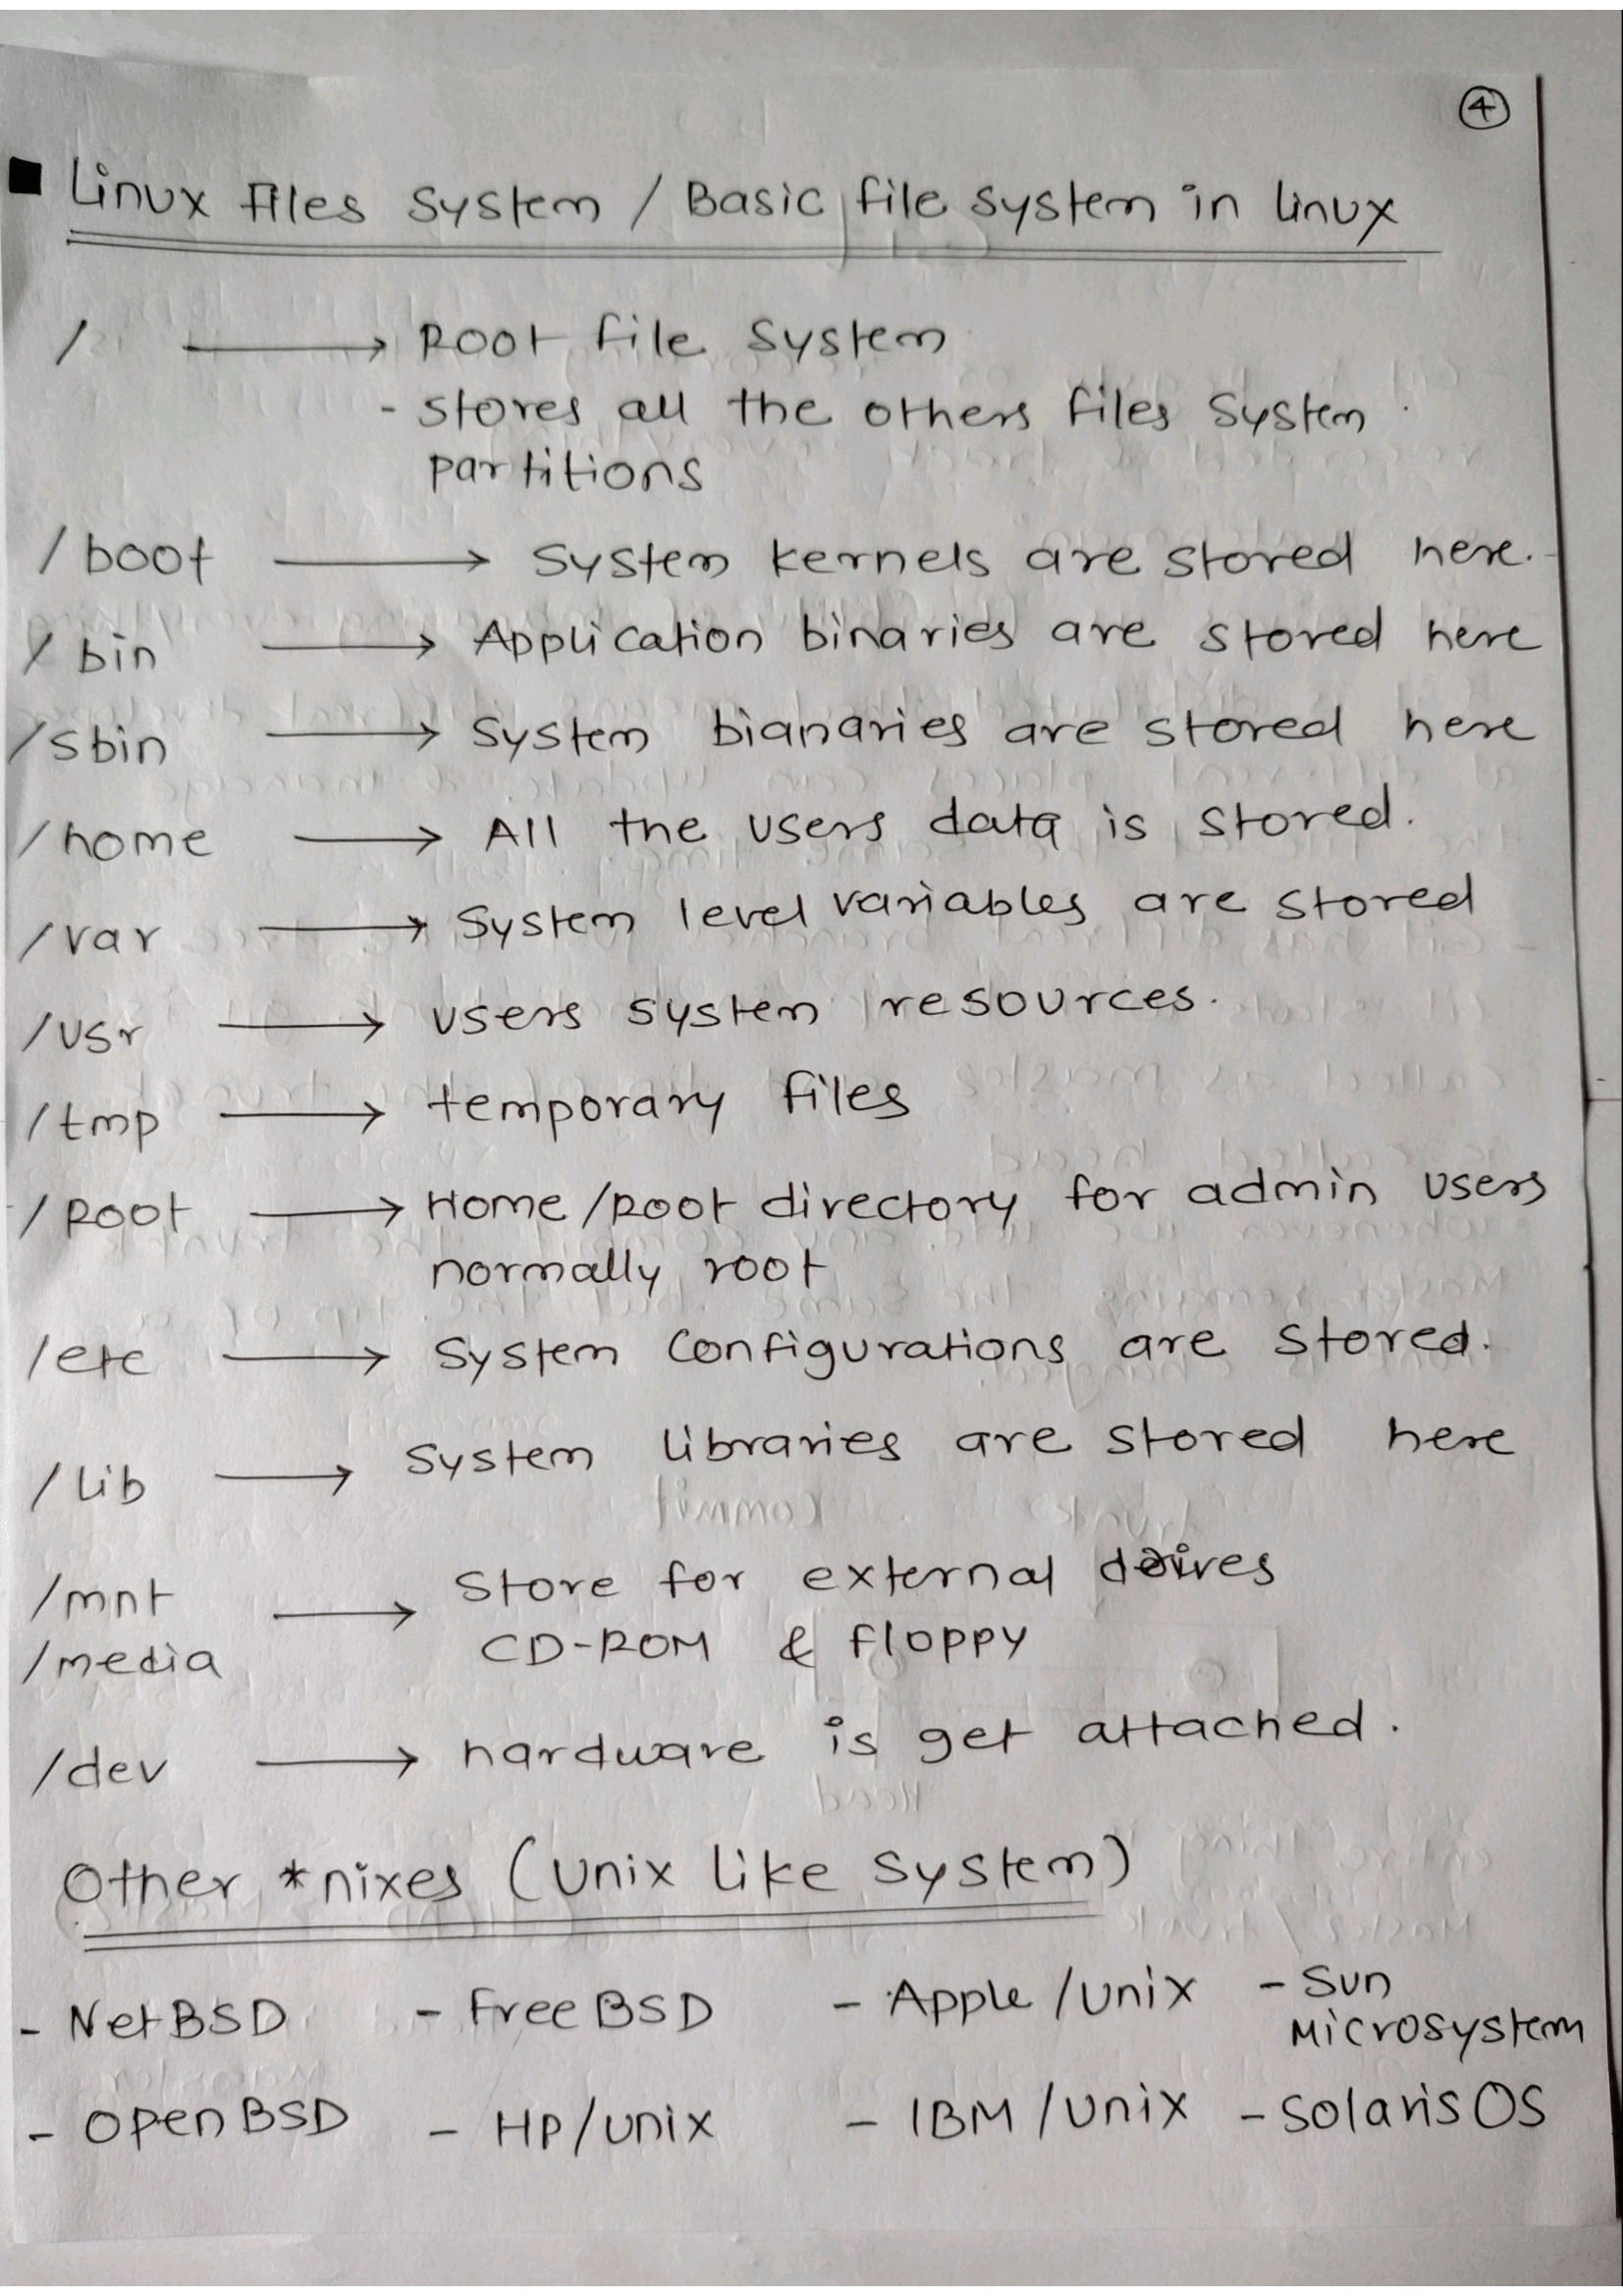 4
Linux Files System / Basic file system in linux
/ → Root file System
- stores all the others files System
partitions
/boot → System kernels are stored here.
/bin → Application binaries are stored here
/sbin → System bianaries are stored here
/home → All the users data is stored.
/var → System level variables are stored
/usr → users system resources.
/tmp → temporary files
/Root → Home/Root directory for admin users
normally root
/etc → System Configurations are stored.
/lib → System libraries are stored here
/mnt → Store for external drives
/media CD-ROM & floppy
/dev → hardware is get attached.
Other *nixes (Unix like System)
- NetBSD - FreeBSD - Apple/Unix - Sun
Microsystem
- OpenBSD - HP/Unix - IBM/Unix - Solaris OS